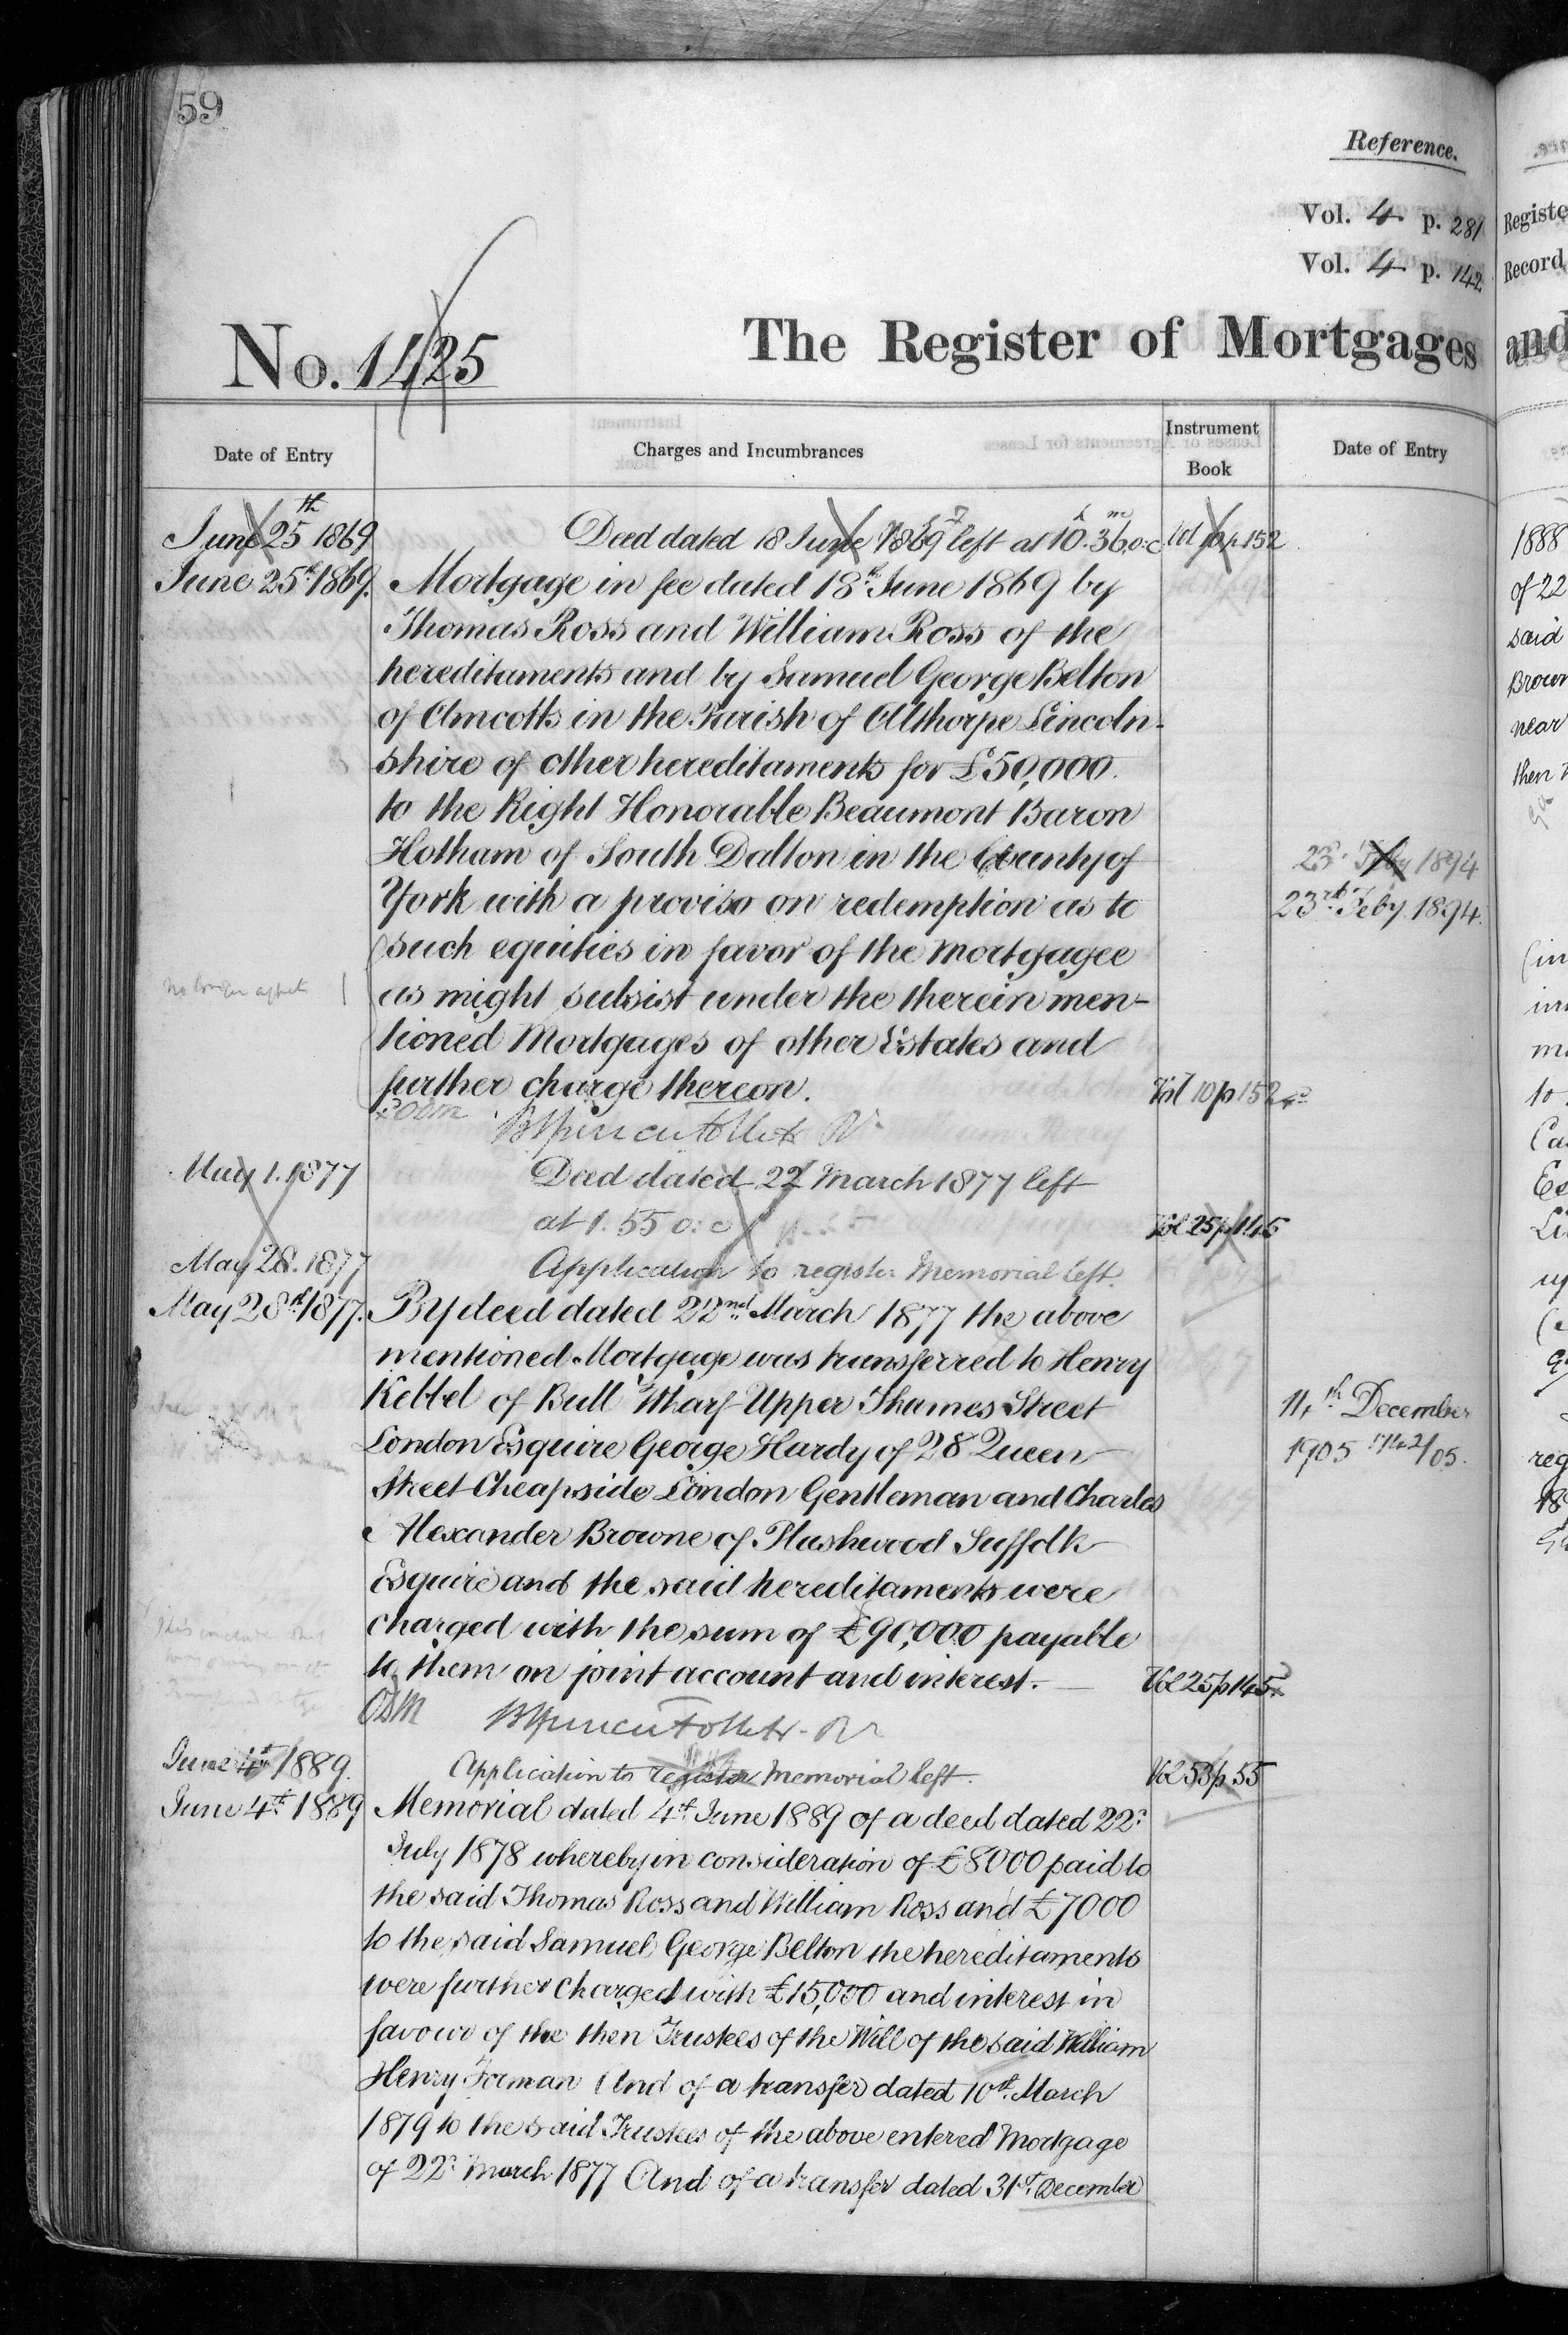 59
Reference.
Vol. 4 p. 281
Vol. 4 p. 142
No. 1425
The Register of Mortgages and
Date of Entry
Charges and Incumbrances
Instrument Book
Date of Entry
June 25th 1869 Deed dated 18 June 1869 left at 10h.36m o:c Vol 10 p 152
June 25th 1869. Mortgage in fee dated 18th June 1869 by
Thomas Ross and William Ross of the
hereditaments and by Samuel George Belton
of Amcotts in the Parish of Althorpe Lincoln-
shire of other hereditaments for £50,000.
to the Right Honorable Beaumont Baron
Hotham of South Dalton in the County of
23rd Feby 1894
York with a proviso on redemption as to
23rd Feby. 1894.
such equities in favor of the Mortgagee
no longer affects
as might subsist under the therein men-
tioned Mortgages of other Estates and
further charge thereon. Vol 10 p 152
May 1. 1877 Deed dated 22 March 1877 left
at 1.55 o:c Vol 25 p 145
May 28. 1877 Application to register Memorial left.
May 28th 1877. By deed dated 22nd March 1877 the above
mentioned Mortgage was transferred to Henry
Kebbel of Bull Wharf Upper Thames Street
11th December
London Esquire George Hardy of 28 Queen
1905
Street Cheapside London Gentleman and Charles
Alexander Browne of Plashwood Suffolk
Esquire and the said hereditaments were
charged with the sum of £90,000 payable
to them on joint account and interest. Vol 25 p 145
June 4th 1889. Application to register Memorial left. Vol 53 p 55
June 4th 1889 Memorial dated 4th June 1889 of a deed dated 22d
July 1878 whereby in consideration of £8000 paid to
the said Thomas Ross and William Ross and £7000
to the said Samuel George Belton the hereditaments
were further charged with £15,000 and interest in
favour of the then Trustees of the Will of the said William
Henry Forman And of a transfer dated 10th March
1879 to the said Trustees of the above entered Mortgage
of 22d March 1877 And of a transfer dated 31st December
Registe
Record
1888
of 22
said
Brown
near
then